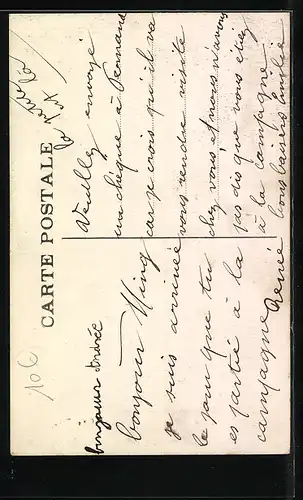 CARTE POSTALE
bonjour André
bonjour Ning
je suis arrivée
le jour que tu
es partie à la
campagne
Renée
Veuillez envoyé
un chèque à Fernand
car je crois qu'il va
vous rendre visite
chez vous nous n'avons
pas dis que vous étiez
à la campagne
bons baisers Emilie
106